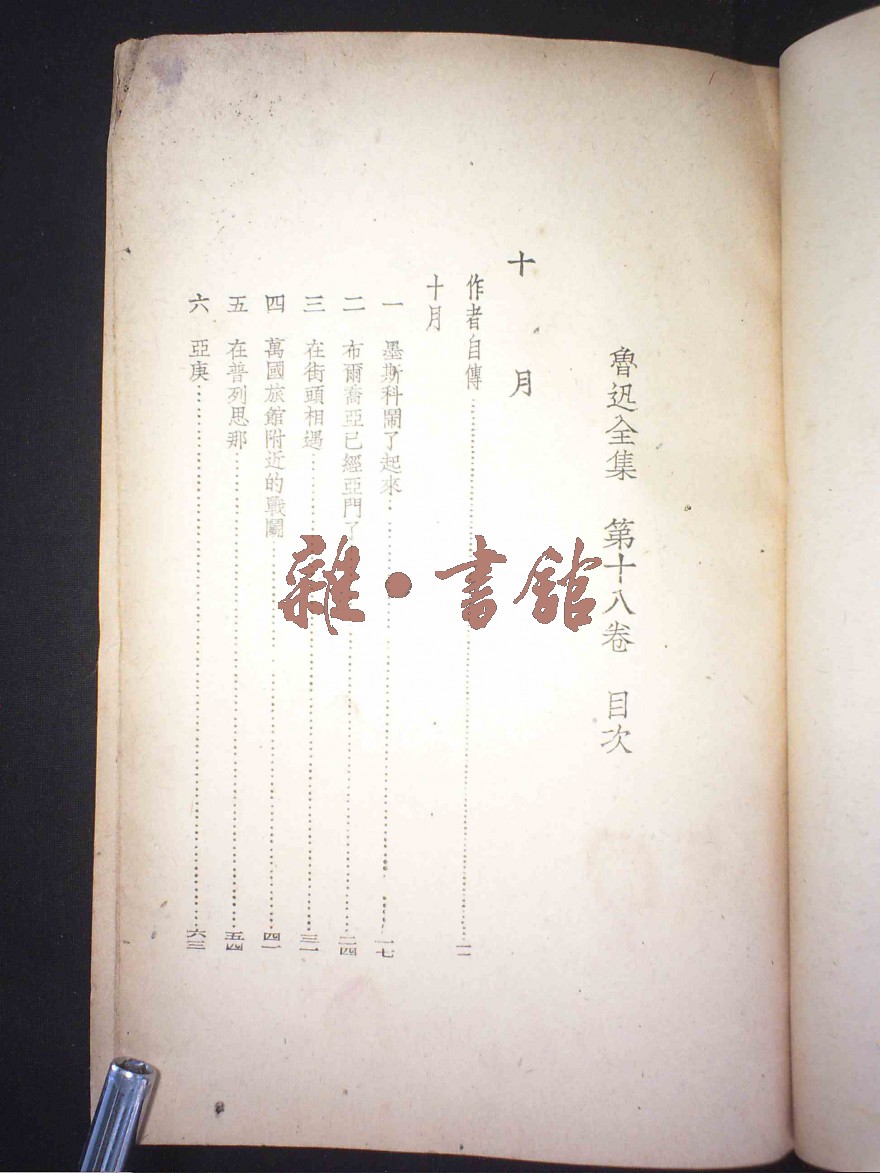 魯迅全集 第十八卷 目次
十月
作者自傳…………一一
十月
一 墨斯科鬧了起來…………一七
二 布爾喬亞已經亞門了…………二四
三 在街頭相遇…………三一
四 萬國旅館附近的戰鬭…………四一
五 在普列思那…………五四
六 亞庚…………六三
雜·書館